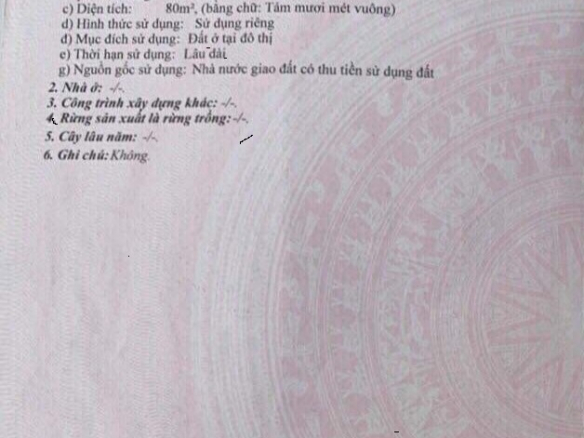 c) Diện tích: 80m², (bằng chữ: Tám mươi mét vuông)
d) Hình thức sử dụng: Sử dụng riêng
đ) Mục đích sử dụng: Đất ở tại đô thị
e) Thời hạn sử dụng: Lâu dài
g) Nguồn gốc sử dụng: Nhà nước giao đất có thu tiền sử dụng đất
2. Nhà ở: -/-.
3. Công trình xây dựng khác: -/-.
4. Rừng sản xuất là rừng trồng: -/-.
5. Cây lâu năm: -/-.
6. Ghi chú: Không.